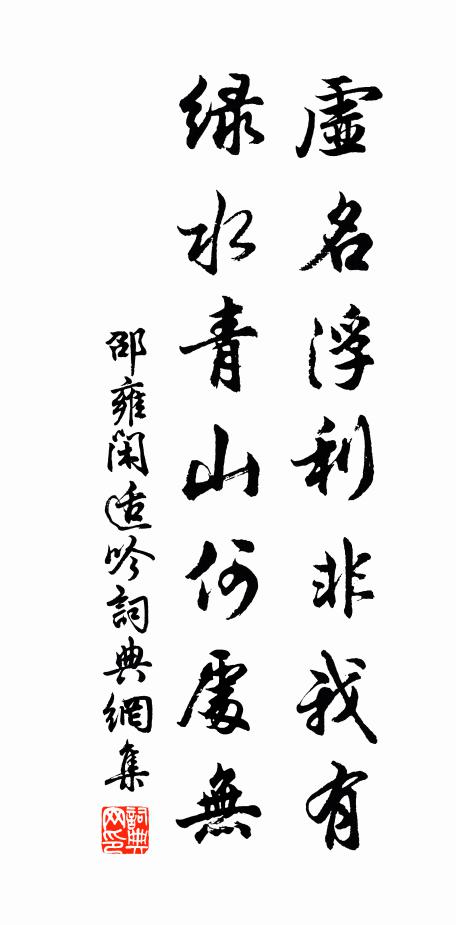 虛名浮利非我有
綠水青山何處無
邵雍閑適吟詞典網集
詞典网印